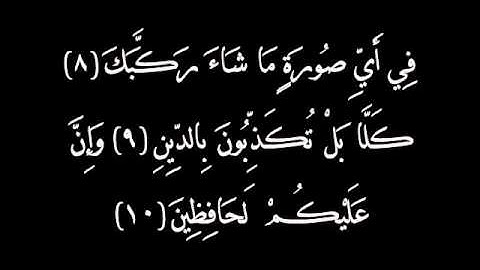 فِي أَيِّ صُورَةٍ مَا شَاءَ رَكَّبَكَ (٨)
كَلَّا بَلْ تُكَذِّبُونَ بِالدِّينِ (٩) وَإِنَّ
عَلَيْكُمْ لَحَافِظِينَ (١٠)